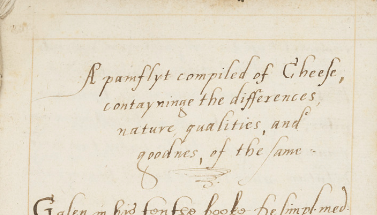 A pamflyt compiled of Cheese,
contayninge the differences,
nature, qualities, and
goodnes, of the same
Galen in his